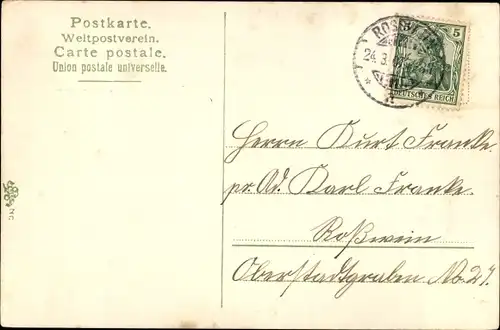 Postkarte.
Weltpostverein.
Carte postale.
Union postale universelle.
24.3.
5
DEUTSCHES REICH
Herrn Kurt Franke.
pr. Ad. Karl Franke.
Roßwein
Oberstadtgraben No. 27.